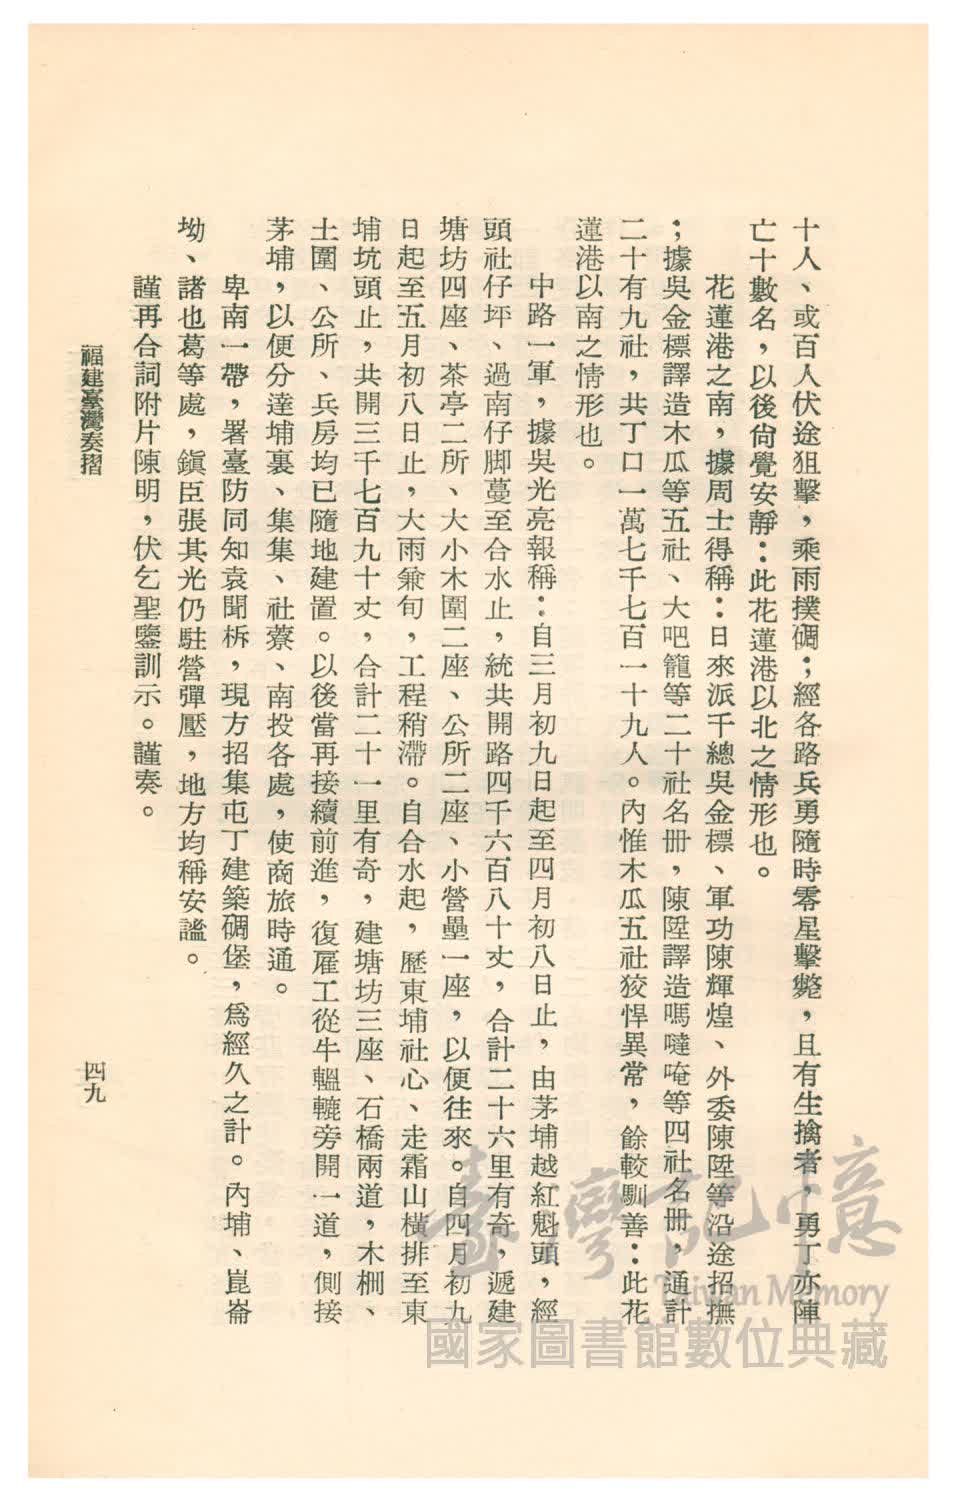 十人、或百人伏途狙擊，乘雨撲碉；經各路兵勇隨時零星擊斃，且有生擒者，勇丁亦陣
亡十數名，以後尙覺安靜：此花蓮港以北之情形也。
花蓮港之南，據周士得稱：日來派千總吳金標、軍功陳輝煌、外委陳陞等沿途招撫
；據吳金標譯造木瓜等五社、大吧籠等二十社名册，陳陞譯造嗎噠唵等四社名册，通計
二十有九社，共丁口一萬七千七百一十九人。內惟木瓜五社狡悍異常，餘較馴善：此花
蓮港以南之情形也。
中路一軍，據吳光亮報稱：自三月初九日起至四月初八日止，由茅埔越紅魁頭，經
頭社仔坪、過南仔脚蔓至合水止，統共開路四千六百八十丈，合計二十六里有奇，遞建
塘坊四座、茶亭二所、大小木圍二座、公所二座、小營壘一座，以便往來。自四月初九
日起至五月初八日止，大雨兼旬，工程稍滯。自合水起，歷東埔社心、走霜山橫排至東
埔坑頭止，共開三千七百九十丈，合計二十一里有奇，建塘坊三座、石橋兩道，木柵、
土圍、公所、兵房均已隨地建置。以後當再接續前進，復雇工從牛轀轆旁開一道，側接
茅埔，以便分達埔裏、集集、社藔、南投各處，使商旅時通。
卑南一帶，署臺防同知袁聞柝，現方招集屯丁建築碉堡，爲經久之計。內埔、崑崙
坳、諸也葛等處，鎭臣張其光仍駐營彈壓，地方均稱安謐。
謹再合詞附片陳明，伏乞聖鑒訓示。謹奏。
福建臺灣奏摺
四九
臺灣記憶
Taiwan Memory
國家圖書館數位典藏